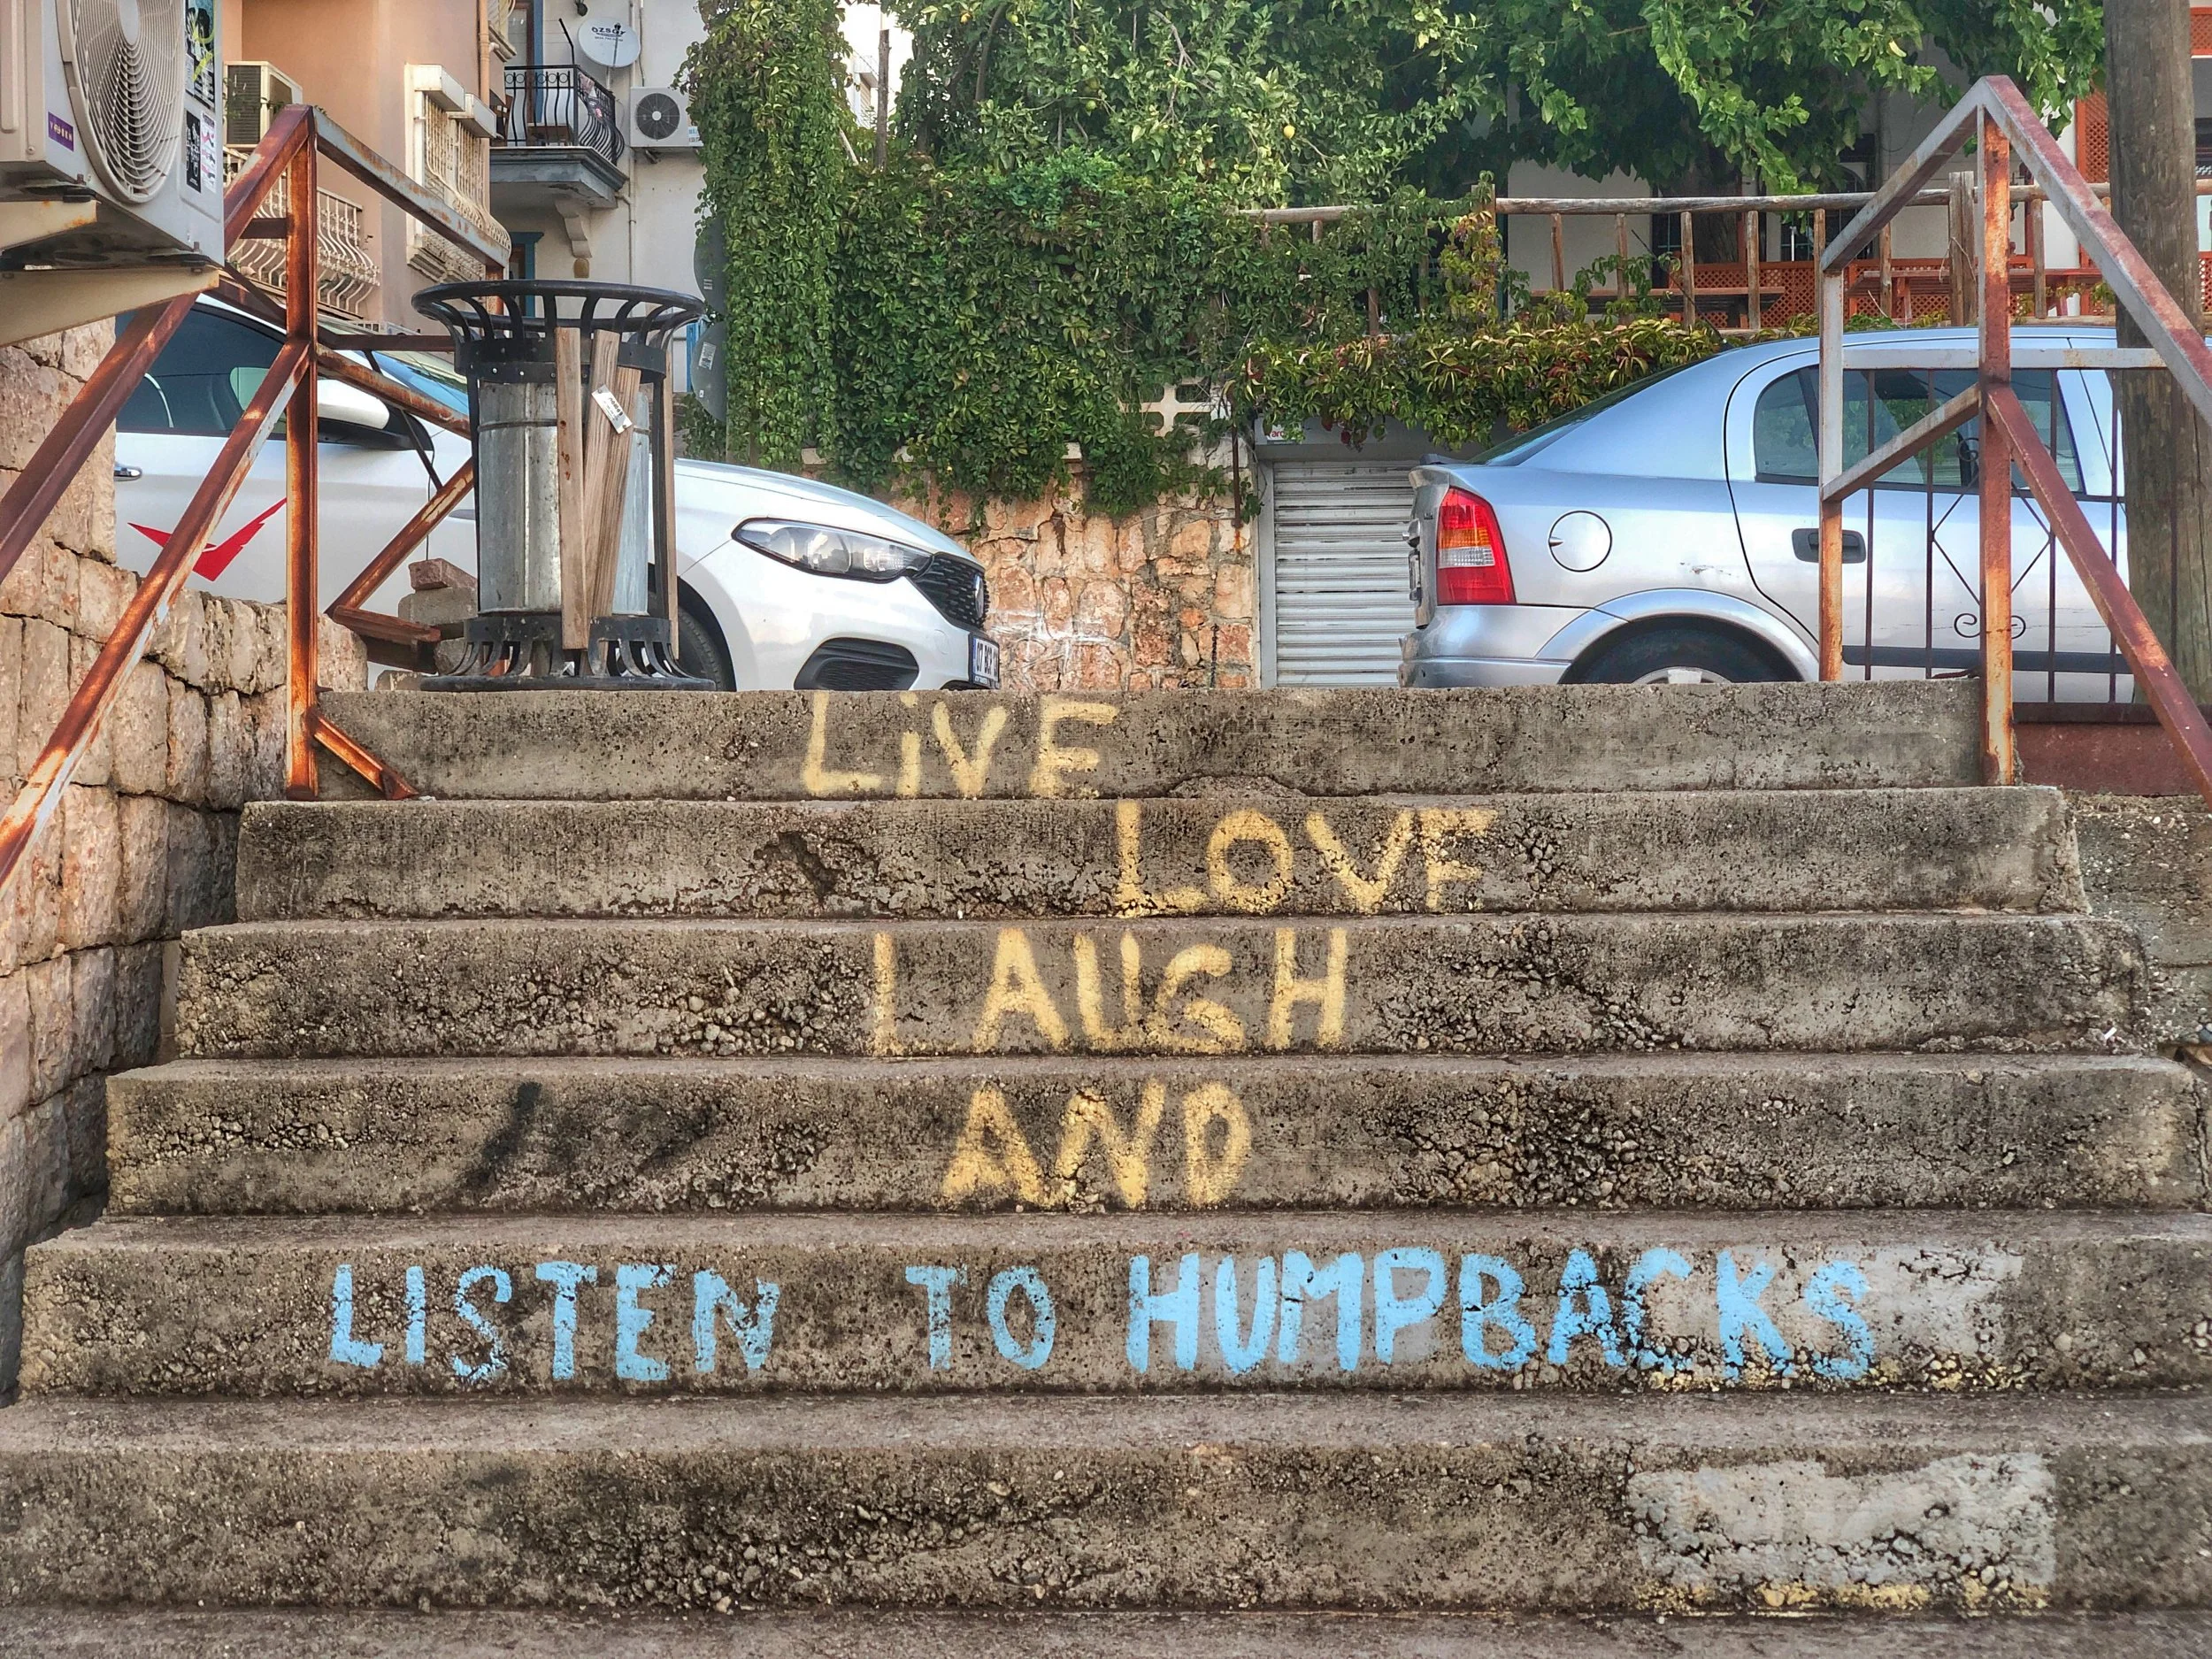 özsat
LiVE
LOVE
LAUGH
AND
LISTEN TO HUMPBACKS